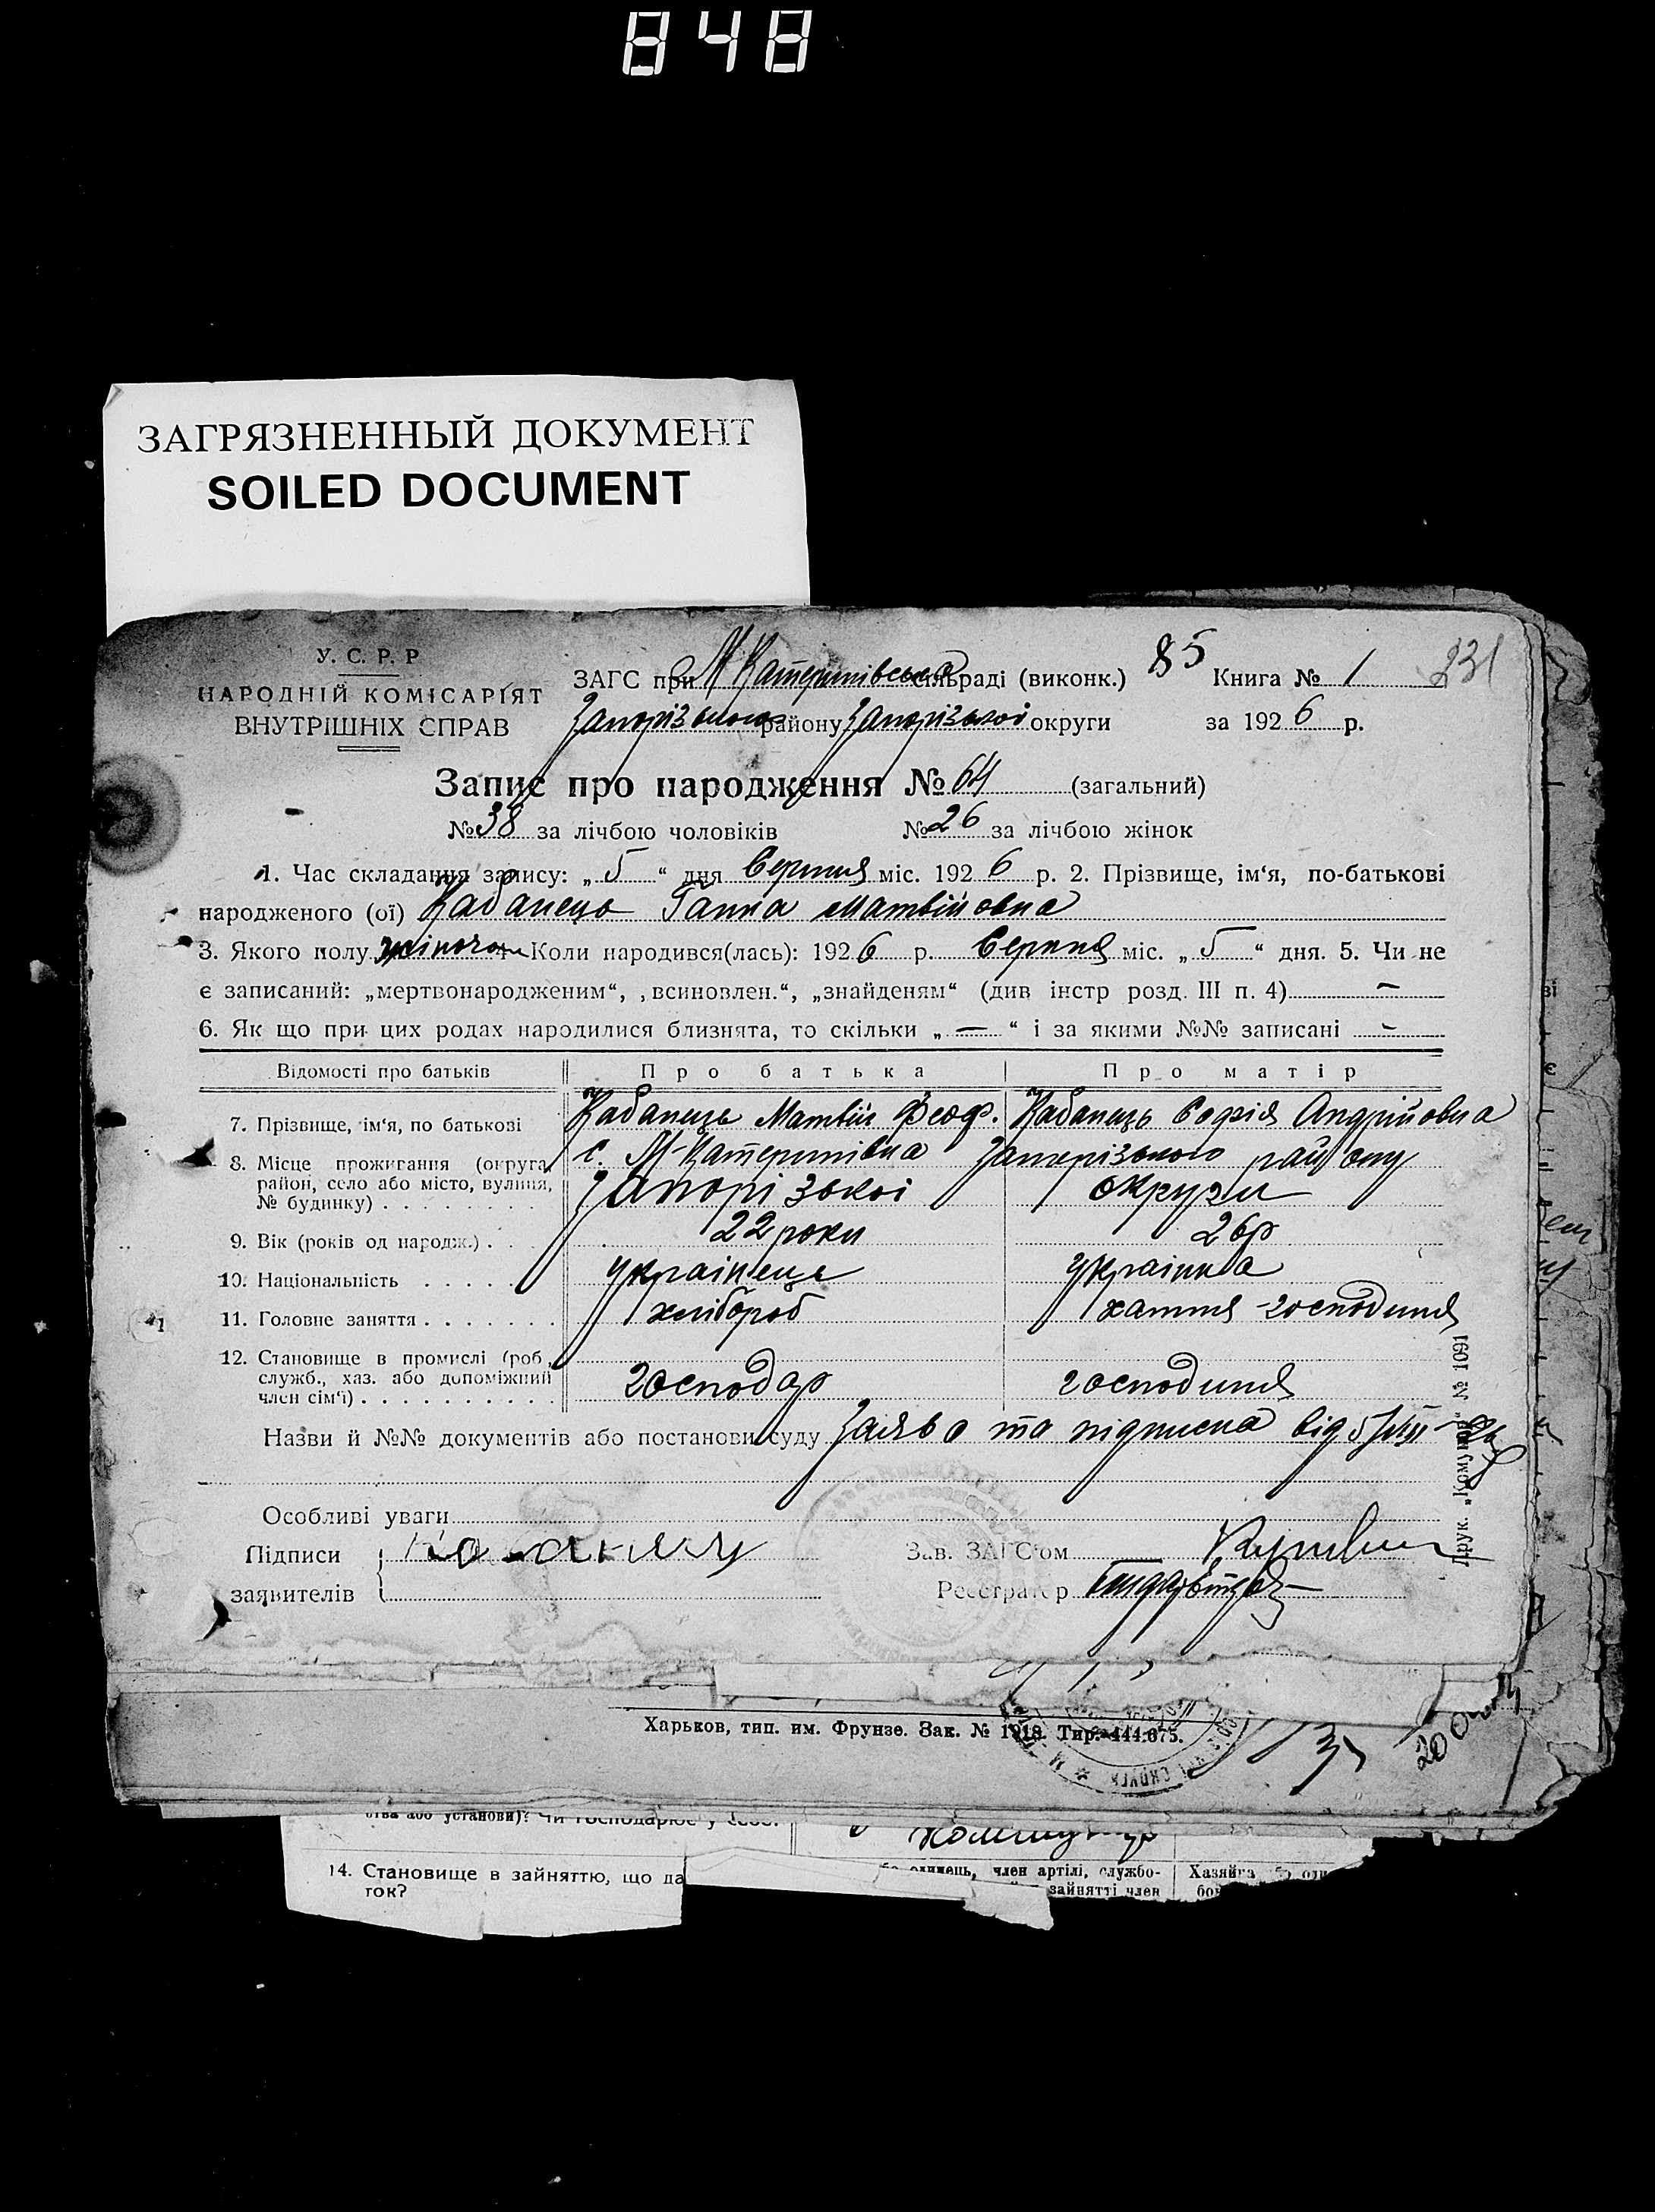 848
ЗАГРЯЗНЕННЫЙ ДОКУМЕНТ
SOILED DOCUMENT
У. С. Р. Р
НАРОДНІЙ КОМІСАРІЯТ
ВНУТРІШНІХ СПРАВ
85
231
ЗАГС при М Катеринівська сільраді (виконк.) Книга № 1
Запорізького району Запорізькоі округи за 1926 р.
Запис про народження № 64 (загальний)
№ 38 за лічбою чоловіків № 26 за лічбою жінок
1. Час складання запису: „5“ дня Серпня міс. 1926 р. 2. Прізвище, ім‘я, по-батькові
народженого (ої) Кабанець Ганна Матвійовна
3. Якого полу жіночого Коли народився(лась): 1926 р. Серпня міс. „5“ дня. 5. Чи не
є записаний: „мертвонародженим“, „всиновлен.“, „знайденям“ (див інстр розд. III п. 4) –
6. Як що при цих родах народилися близнята, то скільки „—“ і за якими №№ записані -
Відомості про батьків Про батька Про матір
7. Прізвище, ім‘я, по батькові Кабанець Матвій Феоф. Кабанець Софія Андрійовна
8. Місце проживання (округа, район, село або місто, вулиця, № будинку) с. М-Катеринівка Запорізького району
Запорізькоі округи
9. Вік (років од народж.) 22 роки 26 р
10. Національність українець українка
11. Головне заняття хлібороб хатня господиня
12. Становище в промислі (роб., служб., хаз. або допоміжний член сім‘ї) господар господиня
Назви й №№ документів або постанови суду Заява та підписка від 5/VIII-26
Особливі уваги
Підписи
заявителів
Зав. ЗАГС‘ом
Реєстратор
Друк. „Комунар“ № 1091
Харьков, тип. им. Фрунзе. Зак. № 1918. Тир. 444.675.
ства або установи)? Чи господарює у себе.
14. Становище в зайняттю, що да
ток?
член артілі, службо-
зайнятті член
Хазяйка